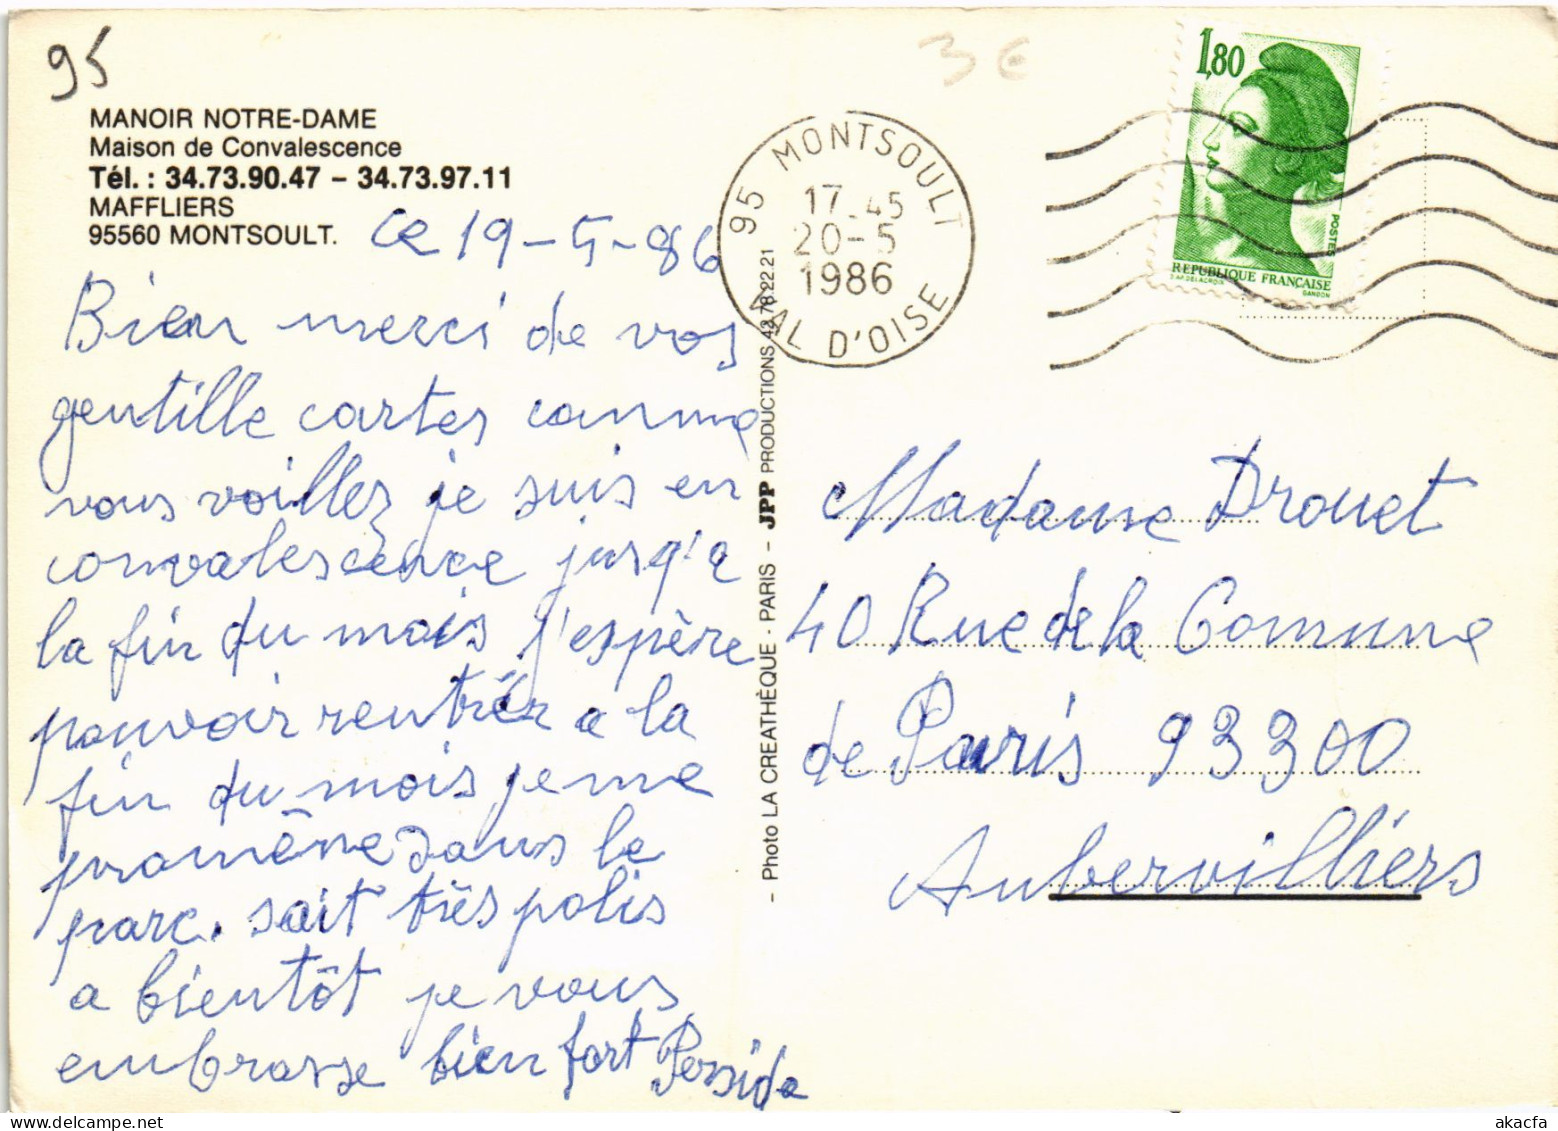 95
3 €
1,80
POSTES
REPUBLIQUE FRANÇAISE
D'AP. DELACROIX
GANDON
95 MONTSOULT
17-45
20-5
1986
VAL D'OISE
MANOIR NOTRE-DAME
Maison de Convalescence
Tél. : 34.73.90.47 – 34.73.97.11
MAFFLIERS
95560 MONTSOULT.
ce 19-5-86
Bien merci de vos
gentille cartes comme
vous voillez je suis en
convalescence jusq'a
la fin du mois j'espère
pouvoir rentrér a la
fin du mois je me
promène dans le
parc. sait très polis
a bientôt je vous
embrasse bien fort Persida
- Photo LA CREATHÈQUE - PARIS - JPP PRODUCTIONS 43.78.22.21
Madame Drouet
40 Rue de la Comune
de Paris 93300
Aubervilliers
akacfa